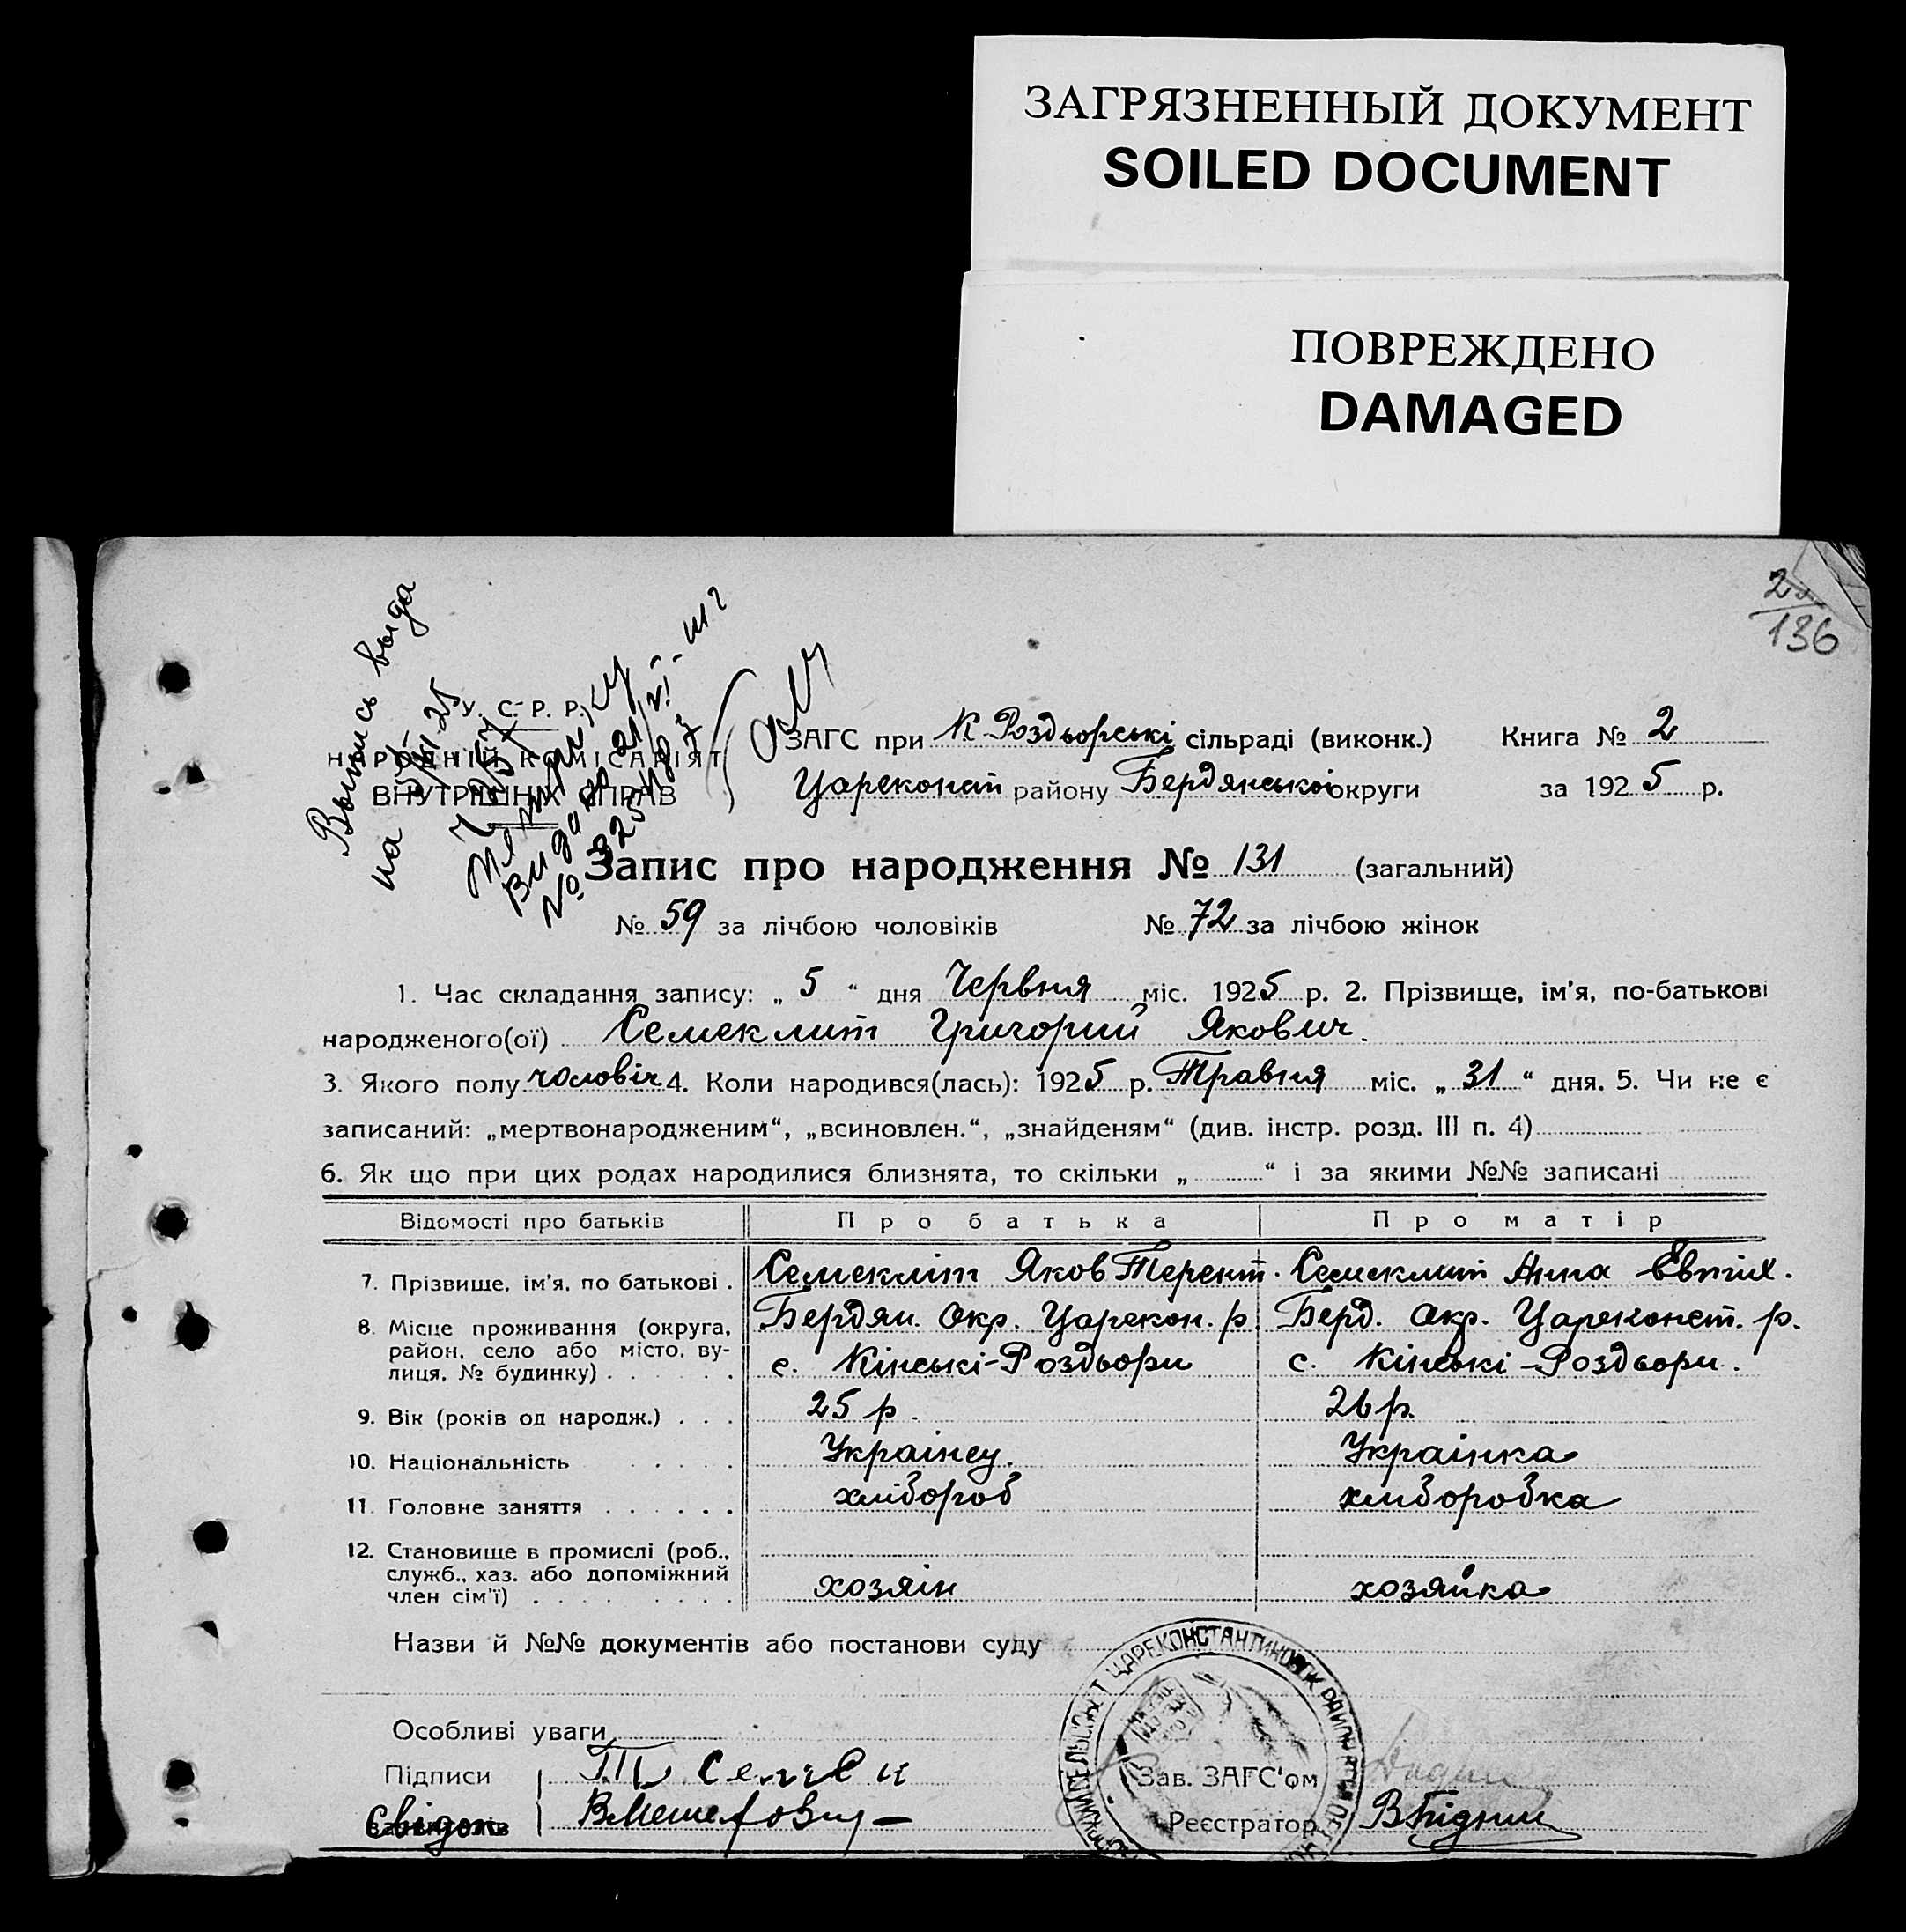 ЗАГРЯЗНЕННЫЙ ДОКУМЕНТ
SOILED DOCUMENT
ПОВРЕЖДЕНО
DAMAGED
136
Выпись выда
на
У. С. Р. Р.
НАРОДНІЙ КОМІСАРІЯТ
ВНУТРІШНІХ СПРАВ
ЗАГС при К Роздьорські сільраді (виконк.) Книга № 2
Цареконст району Бердянської округи за 1925 р.
Запис про народження № 131 (загальний)
№ 59 за лічбою чоловіків № 72 за лічбою жінок
1. Час складання запису: „ 5 “ дня Червня міс. 1925 р. 2. Прізвище, ім'я, по-батькові
народженого(ої) Семеклит Григорий Якович.
3. Якого полу чоловіч 4. Коли народився(лась): 1925 р. Травня міс. „ 31 “ дня. 5. Чи не є
записаний: „мертвонародженим“, „всиновлен.“, „знайденям“ (див. інстр. розд. III п. 4)
6. Як що при цих родах народилися близнята, то скільки „ “ і за якими №№ записані
Відомості про батьків Про батька Про матір
7. Прізвище, ім'я, по батькові . Семекліт Яков Терент. Семеклит Анна Евтих.
8. Місце проживання (округа, район, село або місто, ву-
лиця, № будинку) Бердян. Окр. Царекон. р. Берд. Окр. Цареконст. р.
с. Кінські-Роздьори с. Кінські-Роздьори.
9. Вік (років од народж.) . . . 25 р. 26 р.
10. Національність Українец. Українка
11. Головне заняття хлібороб хлиборобка
12. Становище в промислі (роб.,
служб., хаз. або допоміжний
член сім'ї) хозяін хозяйка
Назви й №№ документів або постанови суду
Особливі уваги
Підписи
Свідок
Зав. ЗАГС'ом
Реєстратор
ЦАРЕКОНСТАНТИНОВСК